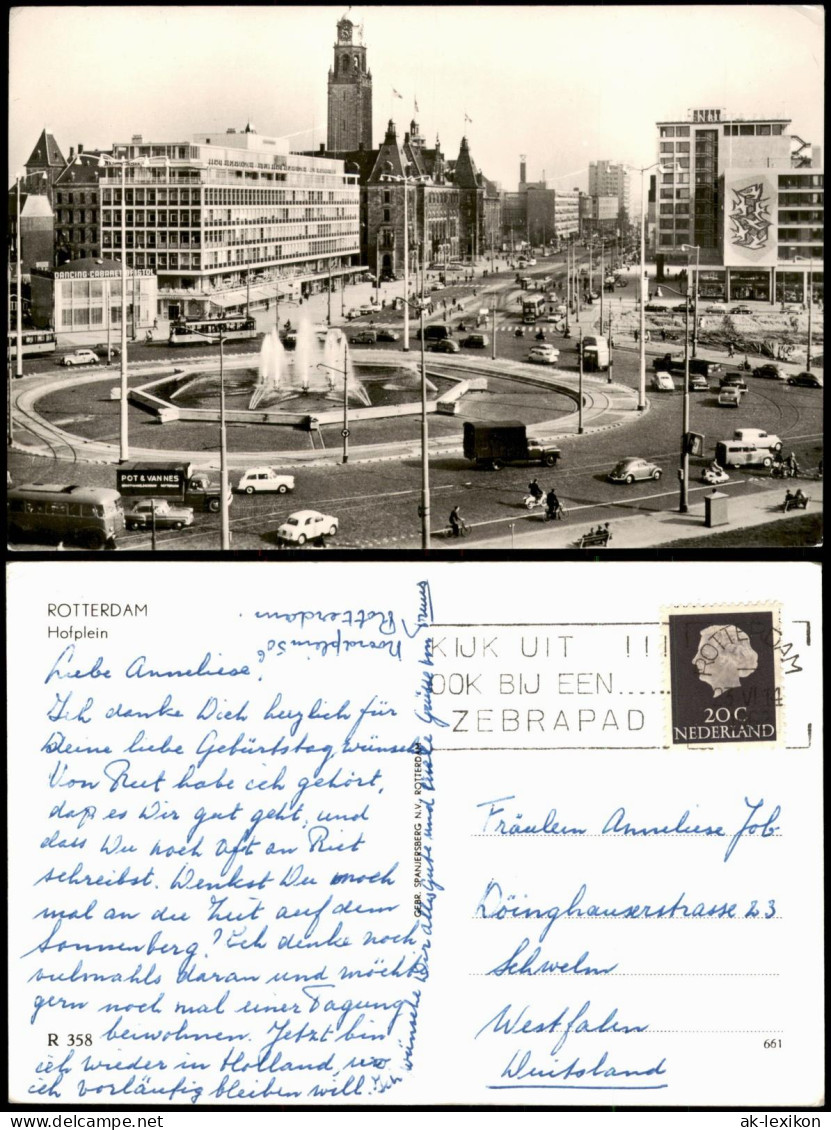 DANCING-CABARET
POT & VAN NES
ROTTERDAM
Hofplein
Noordplein 50
Rotterdam.
Liebe Anneliese,
Ich danke Dich herzlich für
Deine liebe Gebürtstag wünsche
Von Reut habe ich gehört,
daß es Dir gut geht, und
dass Du noch oft an Riet
schreibst. Denkst Du noch
mal an die Zeit auf dem
Sonnenberg? Ich denke noch
vielmahls daran und möcht
gern noch mal einer Tagung
R 358 beiwohnen. Jetzt bin
ich wieder in Holland, wo
ich vorläufig bleiben will. Ich
wünsche Dir alles Gute und viele Grüsse von
GEBR. SPANJERSBERG N.V., ROTTERDAM
KIJK UIT !!!
OOK BIJ EEN......
ZEBRAPAD
ROTTERDAM
20 C
NEDERLAND
Fräulein Anneliese Job
Döinghauserstrasse 23
Schwelm
Westfalen
Duitsland
661
© ak-lexikon
ak-lexikon.com